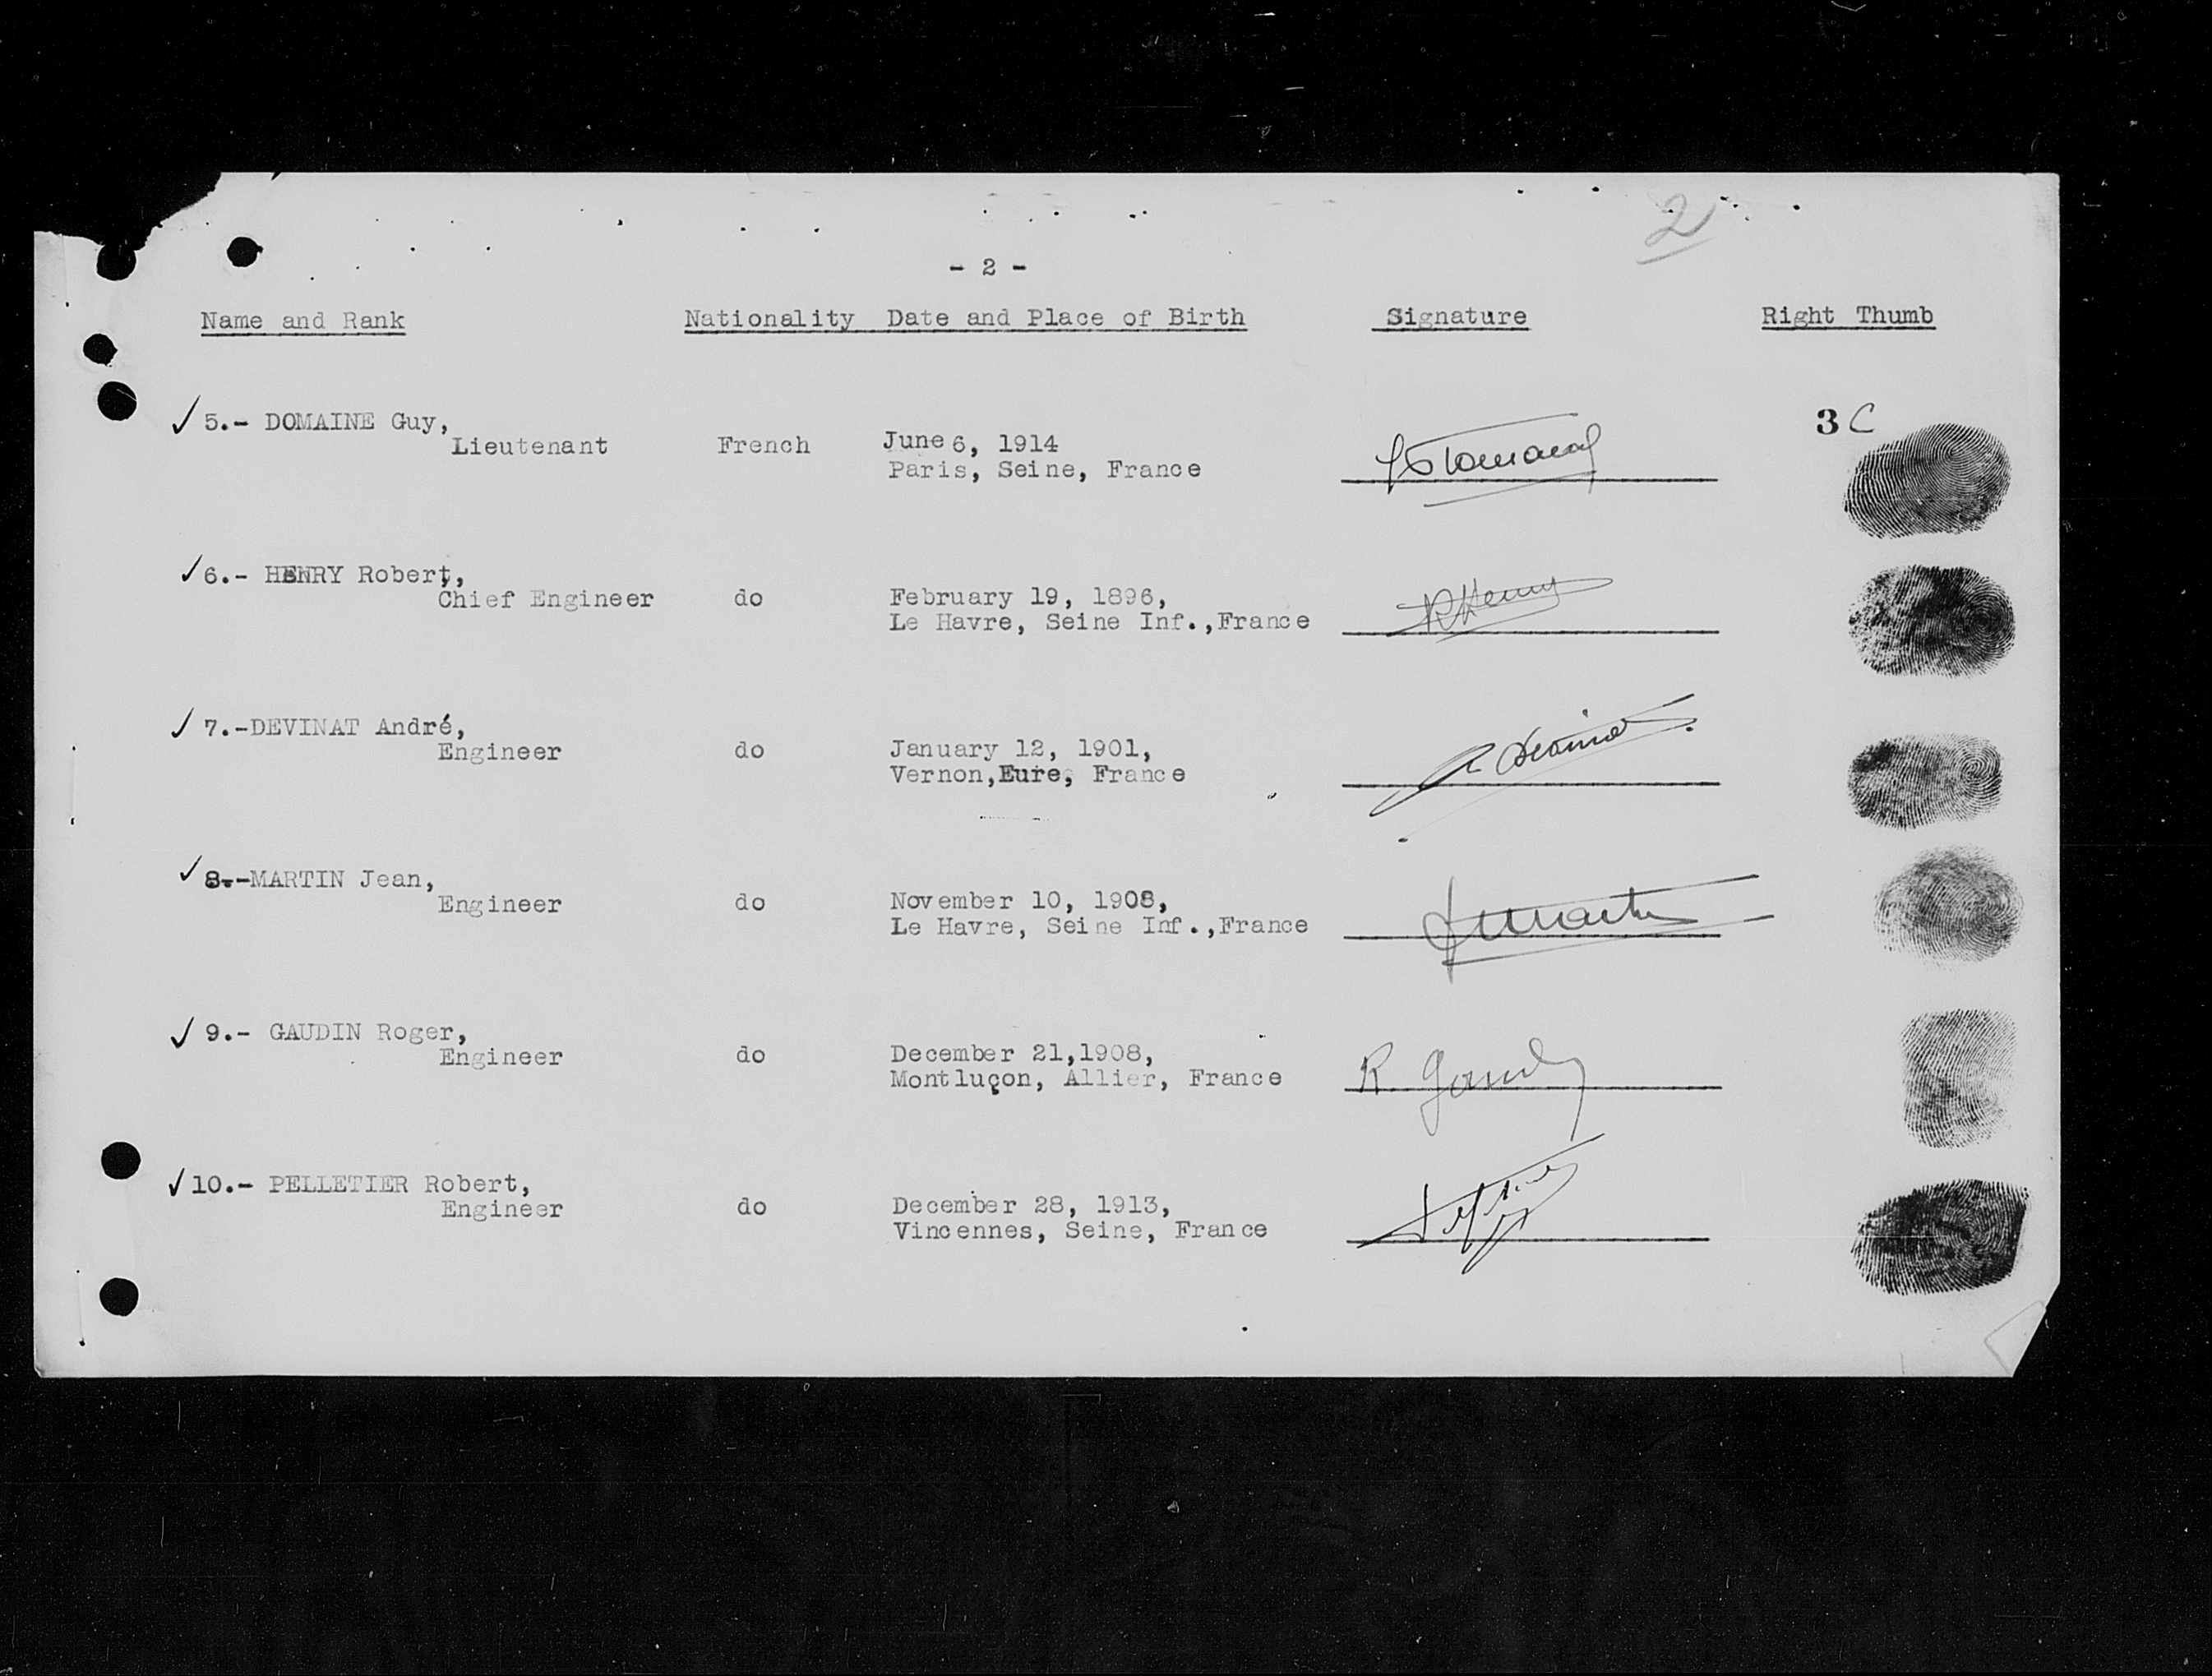 2
- 2 -
Name and Rank Nationality Date and Place of Birth Signature Right Thumb
3 C
✓ 5.- DOMAINE Guy,
Lieutenant French June 6, 1914
Paris, Seine, France
✓ 6.- HENRY Robert,
Chief Engineer do February 19, 1896,
Le Havre, Seine Inf.,France RHenry
✓ 7.-DEVINAT André,
Engineer do January 12, 1901,
Vernon,Eure, France
✓ 8.-MARTIN Jean,
Engineer do November 10, 1908,
Le Havre, Seine Inf.,France J Martin
✓ 9.- GAUDIN Roger,
Engineer do December 21,1908,
Montluçon, Allier, France R Gaudin
✓ 10.- PELLETIER Robert,
Engineer do December 28, 1913,
Vincennes, Seine, France